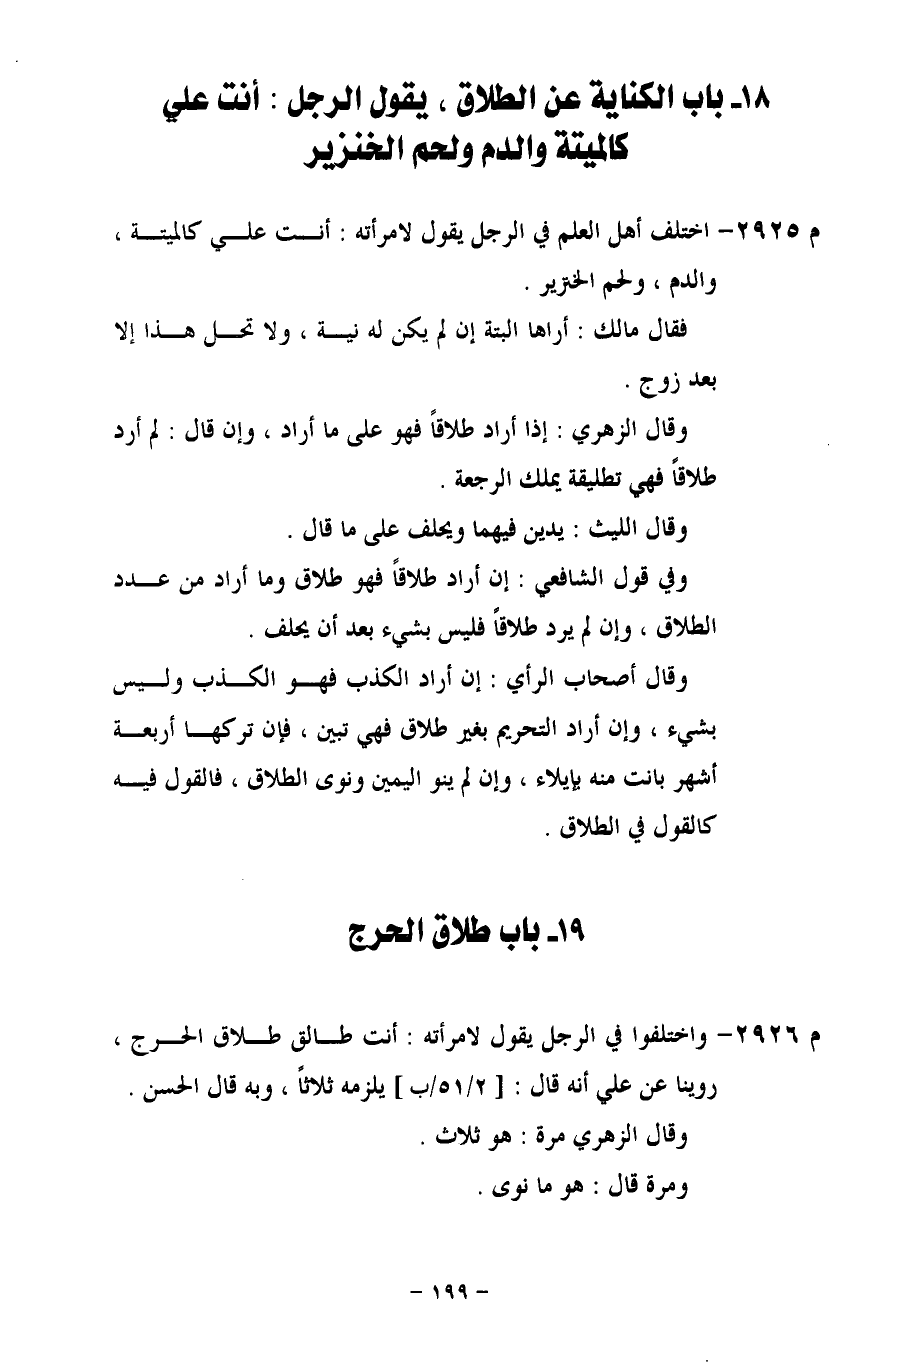 ١٨ـ باب الكناية عن الطلاق ، يقول الرجل : أنت علي
كالميتة والدم ولحم الخنزير
م ٢٩٢٥– اختلف أهل العلم في الرجل يقول لامرأته : أنت علي كالميتة ،
والدم ، ولحم الخنزير .
فقال مالك : أراها البتة إن لم يكن له نية ، ولا تحل هذا إلا
بعد زوج .
وقال الزهري : إذا أراد طلاقاً فهو على ما أراد ، وإن قال : لم أرد
طلاقاً فهي تطليقة يملك الرجعة .
وقال الليث : يدين فيهما ويحلف على ما قال .
وفي قول الشافعي : إن أراد طلاقاً فهو طلاق وما أراد من عدد
الطلاق ، وإن لم يرد طلاقاً فليس بشيء بعد أن يحلف .
وقال أصحاب الرأي : إن أراد الكذب فهو الكذب وليس
بشيء ، وإن أراد التحريم بغير طلاق فهي تبين ، فإن تركها أربعة
أشهر بانت منه بإيلاء ، وإن لم ينو اليمين ونوى الطلاق ، فالقول فيه
كالقول في الطلاق .
١٩ـ باب طلاق الحرج
م ٢٩٢٦– واختلفوا في الرجل يقول لامرأته : أنت طالق طلاق الحرج ،
روينا عن علي أنه قال : [ ٥١/٢/ب ] يلزمه ثلاثاً ، وبه قال الحسن .
وقال الزهري مرة : هو ثلاث .
ومرة قال : هو ما نوى .
– ١٩٩ –